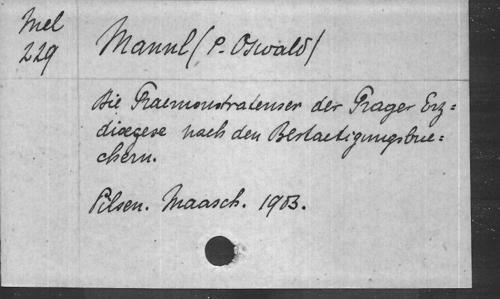 Mel
229
Mannl (P. Oswald)
Die Praemonstratenser der Prager Erz=
dioezese nach den Bestaetigungsbue=
chern.
Pilsen. Maasch. 1903.